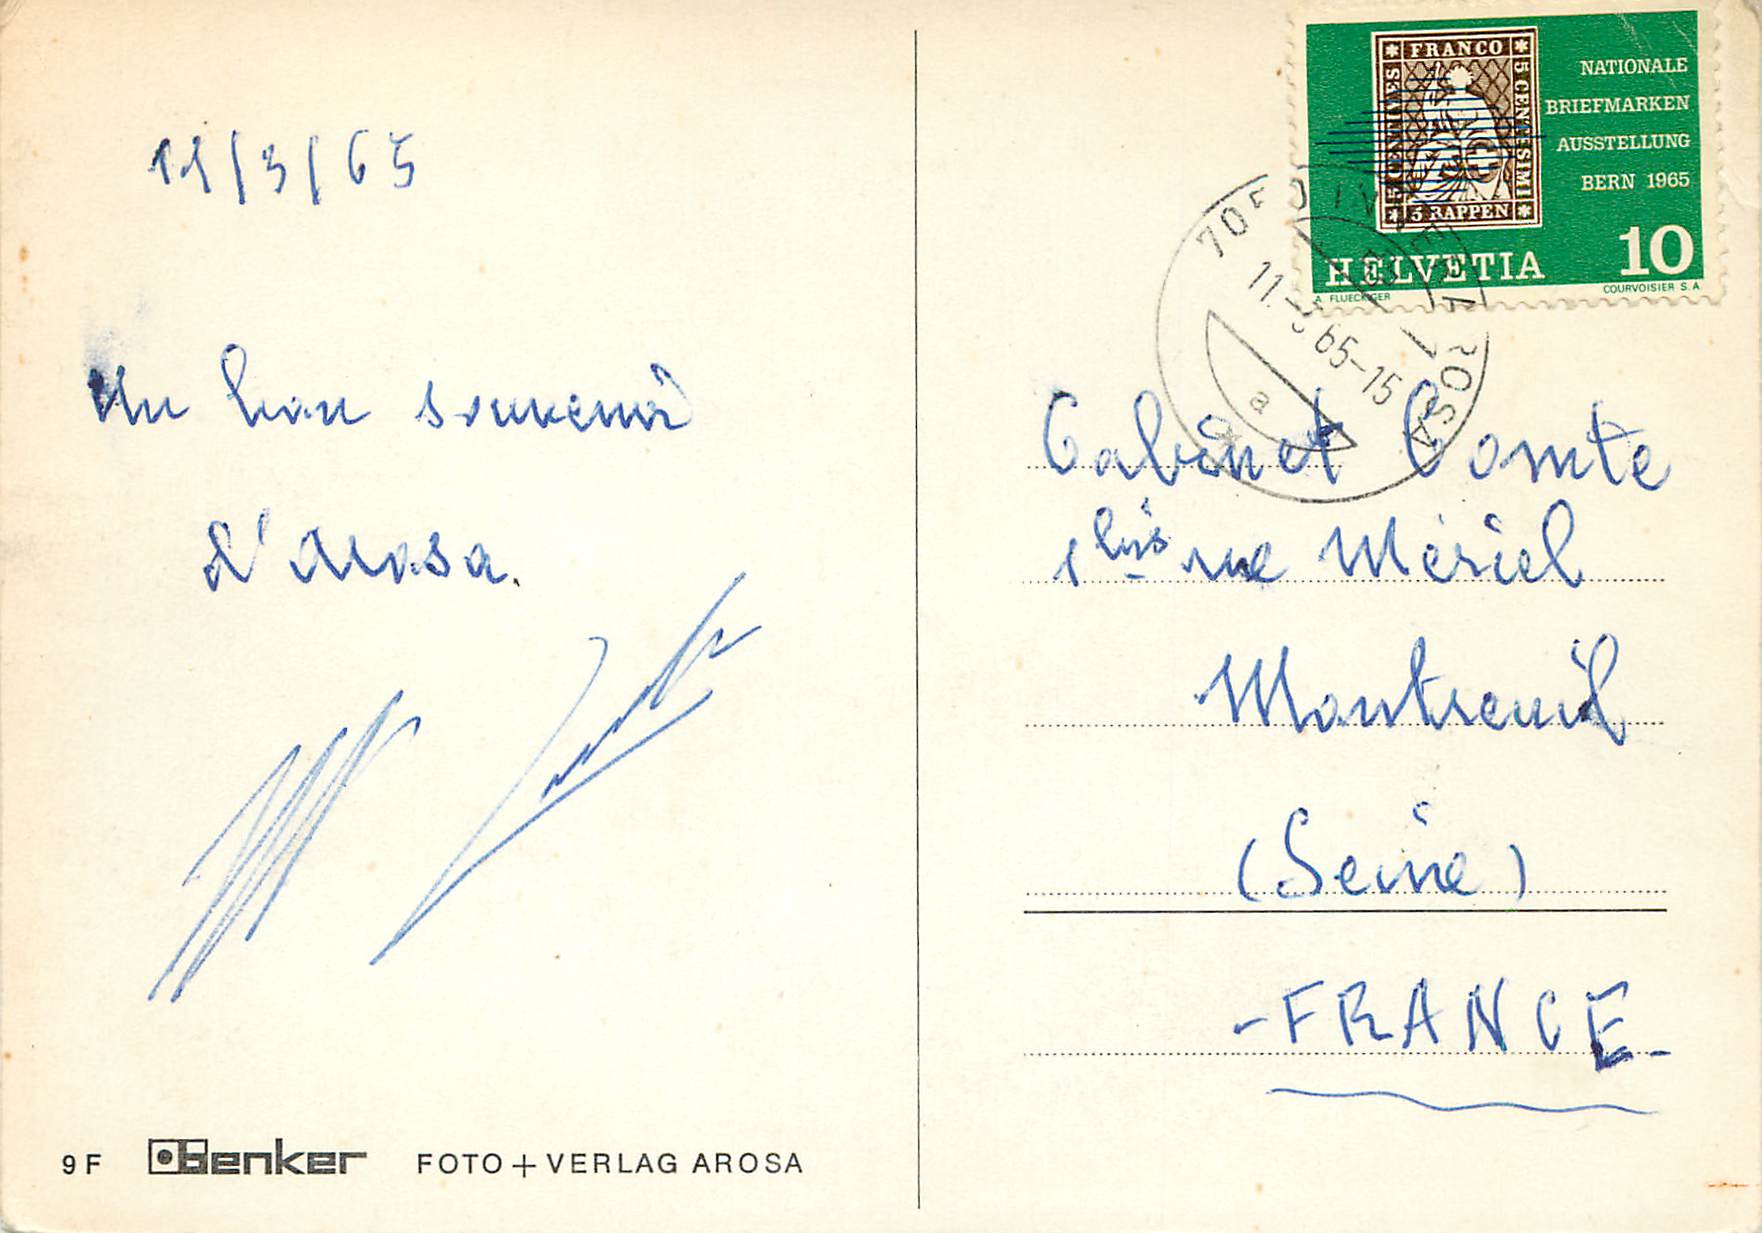 11/3/65
Un bon souvenir
d'Arosa.
9 F Benker FOTO + VERLAG AROSA
* FRANCO *
5 CENTIMES
5 CENTESIMI
* 5 RAPPEN *
NATIONALE
BRIEFMARKEN
AUSSTELLUNG
BERN 1965
HELVETIA 10
A. FLUECKIGER COURVOISIER S.A
INNERAROSA
11.-3.65-15
a
Cabinet Comte
1 bis rue Mériel
Montreuil
(Seine)
-FRANCE-